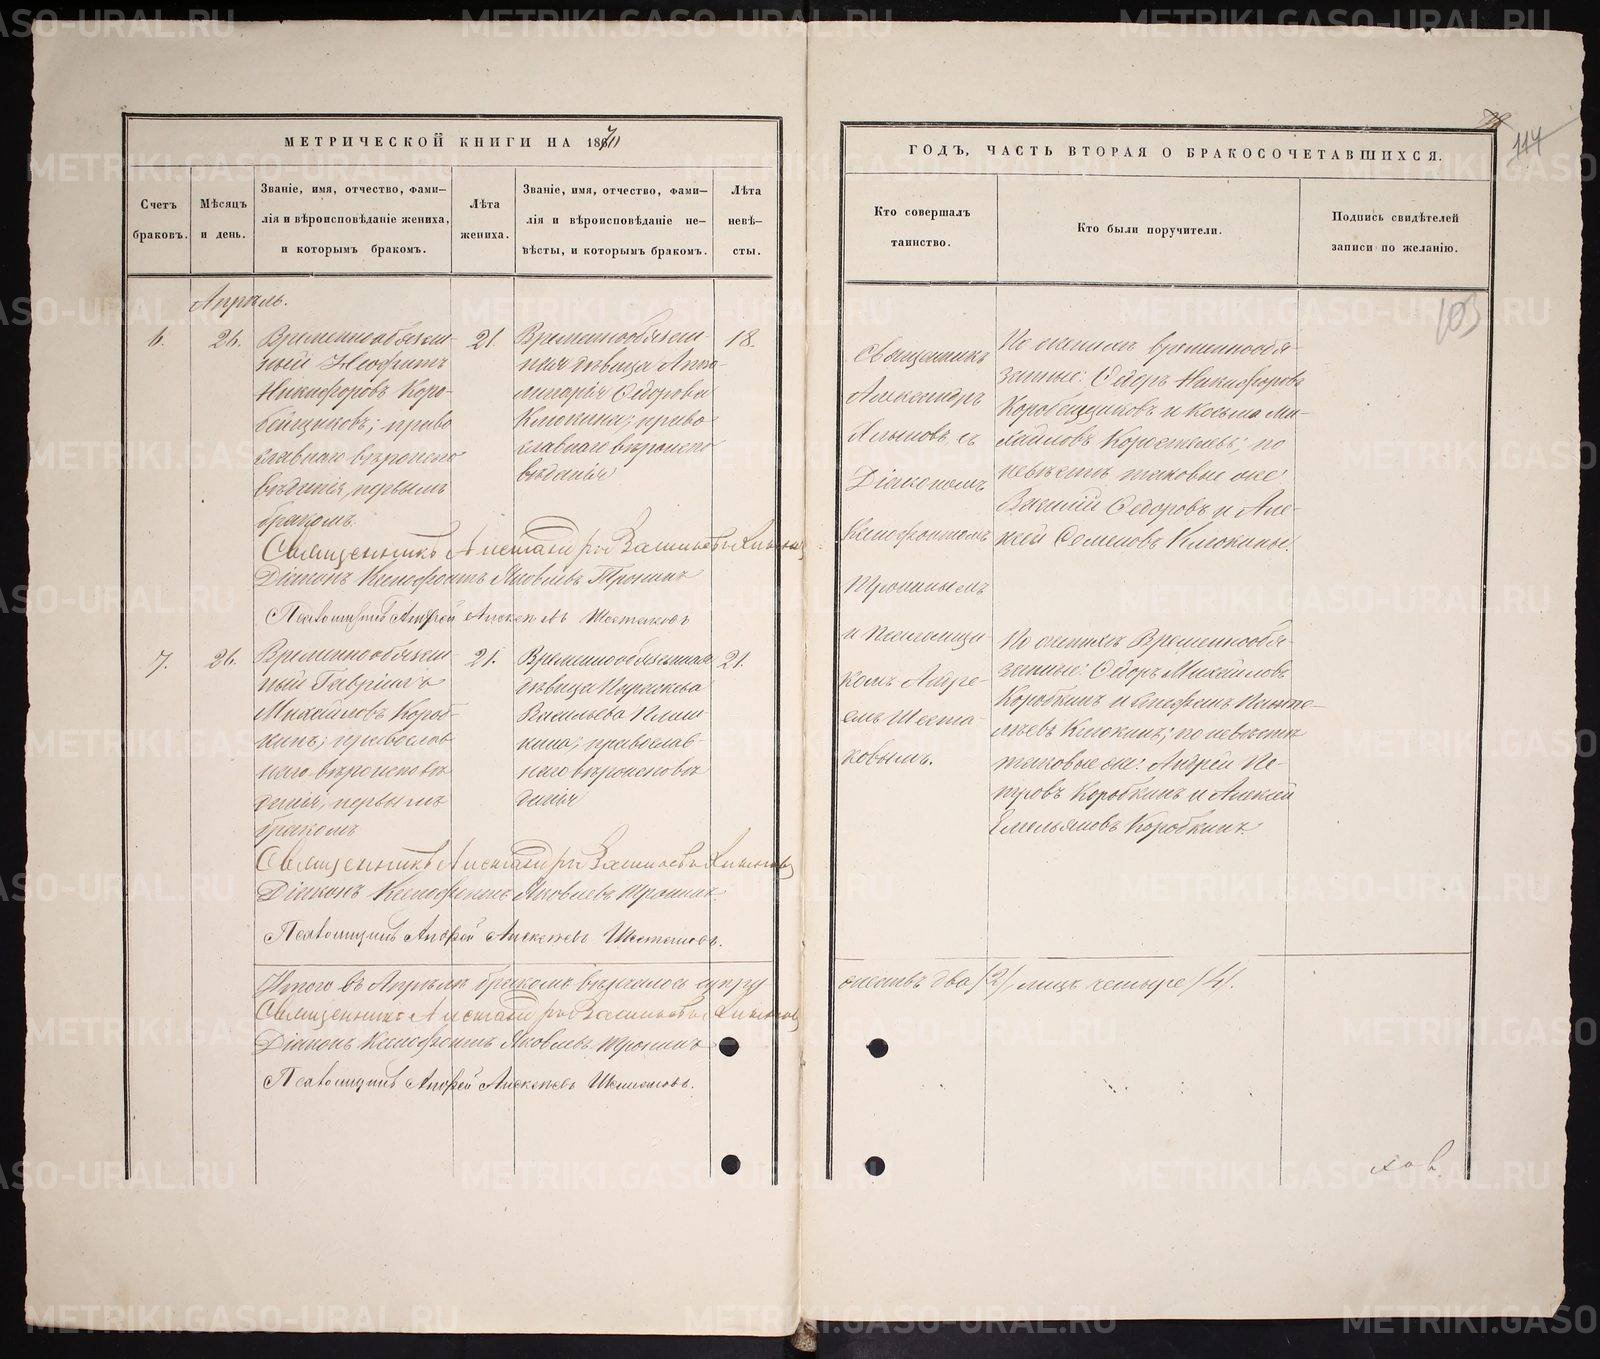 МЕТРИЧЕСКОЙ КНИГИ НА 1870
Счетъ браковъ.
Мѣсяцъ и день.
Званіе, имя, отчество, фами-
лія и вѣроисповѣданіе жениха,
и которымъ бракомъ.
Лѣта жениха.
Званіе, имя, отчество, фами-
лія и вѣроисповѣданіе не-
вѣсты, и которымъ бракомъ.
Лѣта невѣ-
сты.
Апрѣль.
6.
26.
Временнообязан-
ный Неофитъ
Никифоровъ Коро-
бейщиковъ; право
славнаго вѣроиспо
вѣданія, первымъ
бракомъ.
21.
Временнообязан-
ная дѣвица Апол-
линарія Ѳедорова
Клюкина; право
славнаго вѣроиспо
вѣданія
18.
Священникъ Александръ Васильевъ
Діаконъ Ксенофонтъ Яковлевъ Тронинъ
Псаломщикъ Андрей Алексѣевъ Шестаковъ
7.
26.
Временнообязан-
ный Гавріилъ
Михайловъ Короб-
кинъ; православ
наго вѣроисповѣ
данія, первымъ
бракомъ
21.
Временнообязанная
дѣвица Параскева
Васильева
православ-
наго вѣроисповѣ
данія
21.
Священникъ Александръ Васильевъ
Діаконъ Ксенофонтъ Яковлевъ Тронинъ
Псаломщикъ Андрей Алексѣевъ Шестаковъ.
Итого въ Апрѣлѣ бракомъ вѣнчалось супру
Священникъ Александръ Васильевъ
Діаконъ Ксенофонтъ Яковлевъ Тронинъ
Псаломщикъ Андрей Алексѣевъ Шестаковъ.
114
ГОДЪ, ЧАСТЬ ВТОРАЯ О БРАКОСОЧЕТАВШИХСЯ.
Кто совершалъ
таинство.
Кто были поручители.
Подпись свидѣтелей
записи по желанію.
103
Священникъ
Александръ
съ
Діакономъ
Ксенофонтомъ
Трониным
и Псаломщи-
комъ Андре-
емъ Шеста-
ковымъ.
По женихѣ временнообя-
занные: Ѳедоръ Никифоровъ
Коробейщиковъ и Косьма Ми-
хайловъ по
невѣстѣ таковые же
Василій Ѳедоровъ и Але-
ксѣй Семеновъ Клюкины.
По женихѣ Временнообя-
занные: Ѳедоръ Михайловъ
Коробкинъ и Стефанъ Панте-
лѣевъ Клюкинъ; по невѣстѣ
таковые же: Андрей Пе-
тровъ Коробкинъ и Алексѣй
Емельяновъ Коробкинъ.
жествъ два (2) лицъ четыре (4).